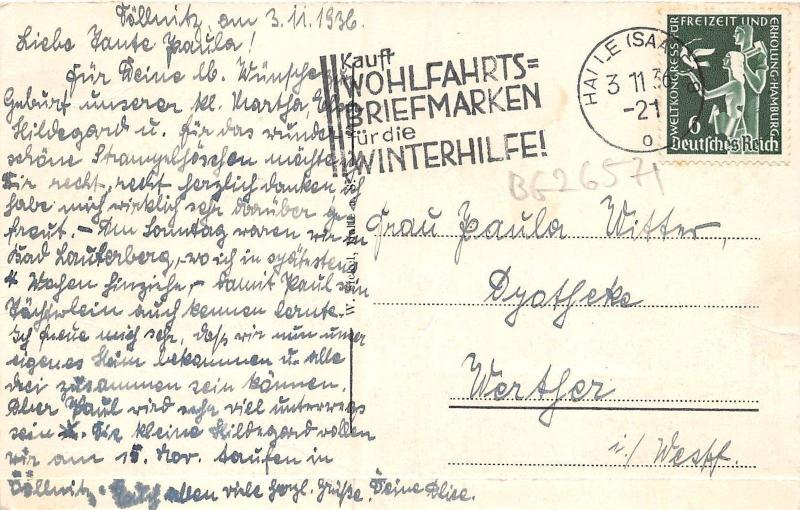 Döllnitz, am 3.11.1936.
Liebe Tante Paula!
Für Deine lb. Wünsche z.
Geburt unserer kl. Martha
Hildegard u. für das wunder-
schöne Strampelhöschen möchte
Dir recht, recht herzlich danken, ich
habe mich wirklich sehr darüber ge-
freut. – Am Sonntag waren wir in
Bad Lauterberg, wo ich in spätestens
4 Wochen hinziehe, – damit Paul sein
Töchterlein auch kennen lernte.
Ich freue mich sehr, daß wir nun unser
eigenes Heim bekommen u. alle
drei zusammen sein können.
Aber Paul wird sehr viel unterwegs
sein. Die kleine Hildegard wollen
wir am 15. Nov. taufen in
Döllnitz. Euch allen viele herzl. Grüße, Deine Elise.
Kauft
WOHLFAHRTS=
BRIEFMARKEN
für die
WINTERHILFE!
HALLE (SAALE)
3 11 36
-21
WELTKONGRESS FÜR FREIZEIT UND ERHOLUNG · HAMBURG
6
Deutsches Reich
BG26571
Frau Paula Witter,
Apotheke
Werther
i/ Westf.